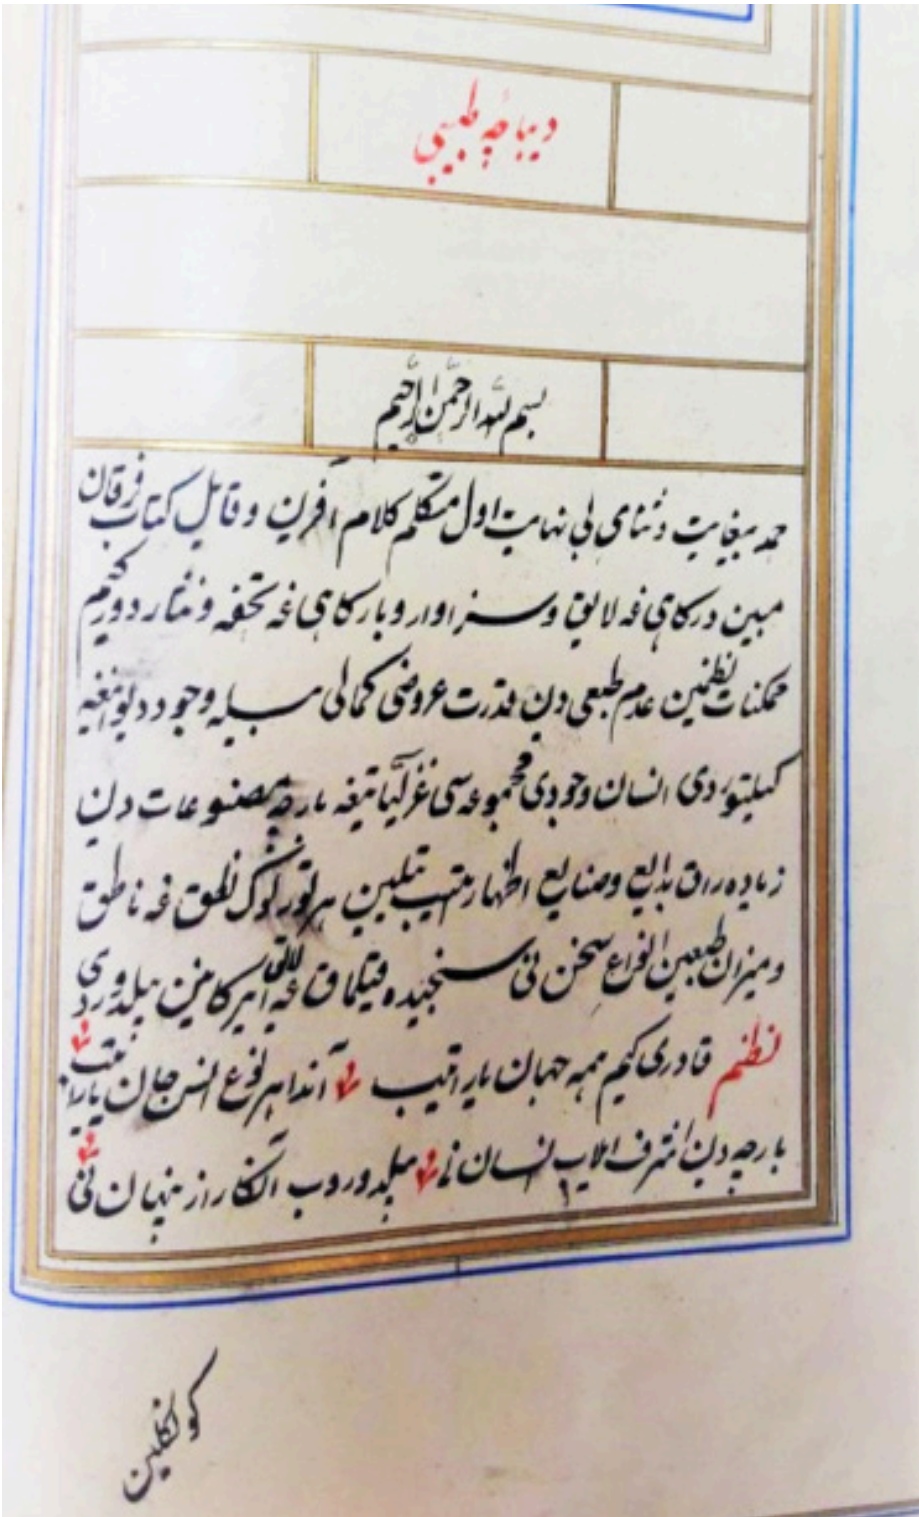 دیباچه طبیبی
بسم الله الرحمن الرحیم
حمد بیغایت و ثنای بی نهایت اول متکلم کلام آفرین و قایل کتاب فرقان
مبین درکاهی غه لایق و سزاوار و بارکاهی غه تحفه و نثار دورکیم
ممکنات نظمین عدم طبعی دین قدرت عروضی کمالی بیله وجود دیوانیغه
کیلتوردی انسان وجودی مجموعه سی غزلیاتیغه بارچه مصنوعات دین
زیاده راق بدایع و صنایع اظهار ایتیب تیلین هر تورلوک نطق غه ناطق
و میزان طبعین انواع سخن نی سنجیده قیلماق غه لایق ایرکانین بیلدوردی
نظم قادری کیم همه جهان یاراتیب آندا هر نوع انس جان یاراتیب
بارچه دین اشرف ایلاب انسان نی بیلدوروب انکا راز پنهان نی
کونکلین